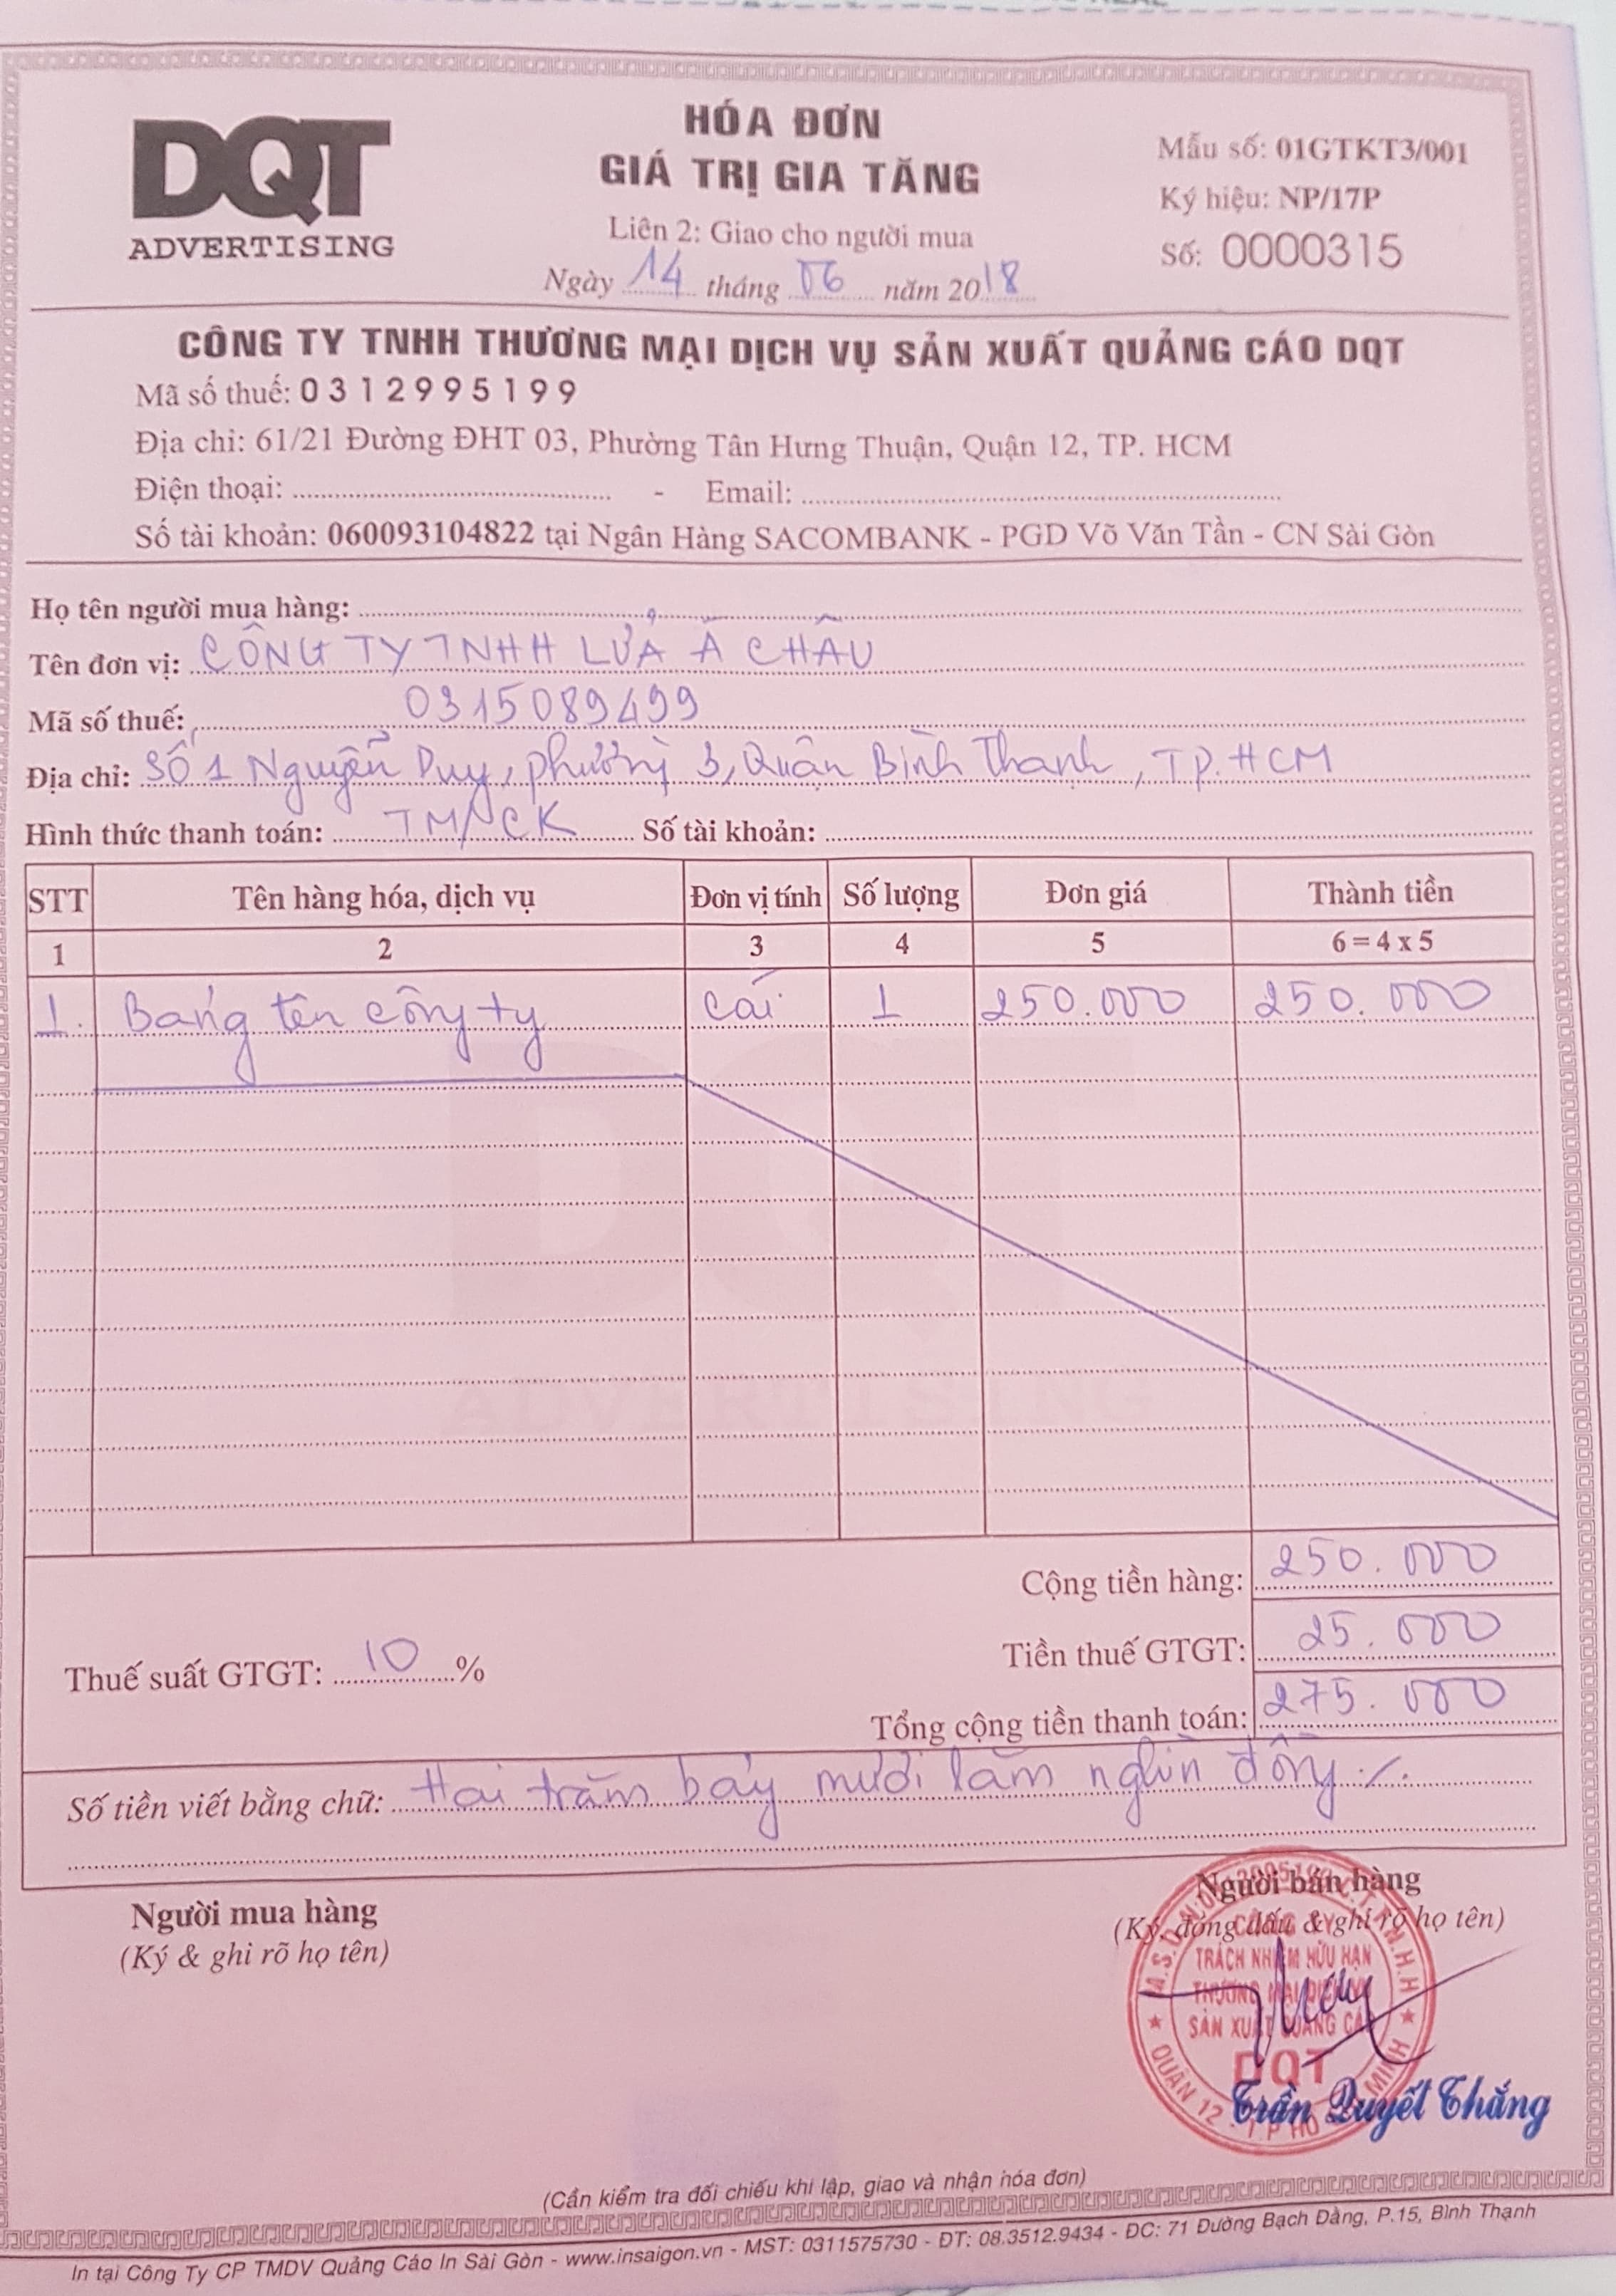 DQT
ADVERTISING
HÓA ĐƠN
GIÁ TRỊ GIA TĂNG
Liên 2: Giao cho người mua
Ngày 14 tháng 06 năm 2018
Mẫu số: 01GTKT3/001
Ký hiệu: NP/17P
Số: 0000315
CÔNG TY TNHH THƯƠNG MẠI DỊCH VỤ SẢN XUẤT QUẢNG CÁO DQT
Mã số thuế: 0312995199
Địa chỉ: 61/21 Đường ĐHT 03, Phường Tân Hưng Thuận, Quận 12, TP. HCM
Điện thoại: - Email:
Số tài khoản: 060093104822 tại Ngân Hàng SACOMBANK - PGD Võ Văn Tần - CN Sài Gòn
Họ tên người mua hàng:
Tên đơn vị: CÔNG TY TNHH LỬA Á CHÂU
Mã số thuế: 0315089499
Địa chỉ: Số 1 Nguyễn Duy, phường 3, Quận Bình Thạnh, TP.HCM
Hình thức thanh toán: TM/CK Số tài khoản:
STT Tên hàng hóa, dịch vụ Đơn vị tính Số lượng Đơn giá Thành tiền
1 2 3 4 5 6 = 4 x 5
1. Bảng tên công ty cái 1 250.000 250.000
Cộng tiền hàng: 250.000
Thuế suất GTGT: 10 % Tiền thuế GTGT: 25.000
Tổng cộng tiền thanh toán: 275.000
Số tiền viết bằng chữ: Hai trăm bảy mươi lăm nghìn đồng ./.
Người mua hàng
(Ký & ghi rõ họ tên)
Người bán hàng
(Ký, đóng dấu & ghi rõ họ tên)
CÔNG TY
TRÁCH NHIỆM HỮU HẠN
THƯƠNG MẠI DỊCH VỤ
SẢN XUẤT QUẢNG CÁO
DQT
QUẬN 12 - T.P HỒ CHÍ MINH
Trần Quyết Thắng
(Cần kiểm tra đối chiếu khi lập, giao và nhận hóa đơn)
In tại Công Ty CP TMDV Quảng Cáo In Sài Gòn - www.insaigon.vn - MST: 0311575730 - ĐT: 08.3512.9434 - ĐC: 71 Đường Bạch Đằng, P.15, Bình Thạnh